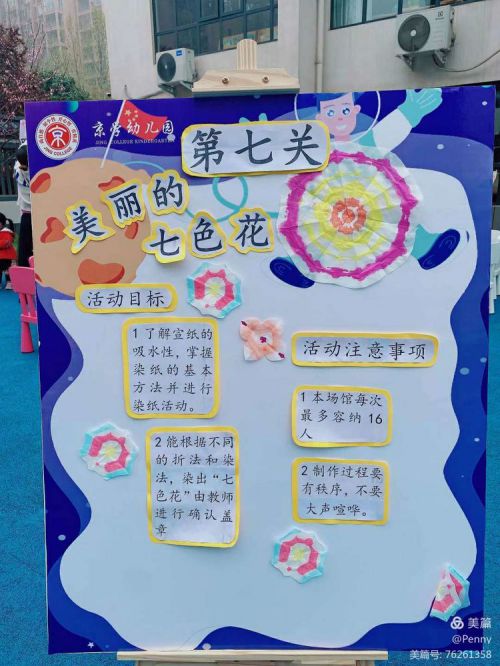 京学幼儿园
JING COLLEGE KINDERGARTEN
JING COLLEGE
第七关
美丽的
七色花
活动目标
1 了解宣纸的
吸水性，掌握
染纸的基本
方法并进行
染纸活动。
2 能根据不同
的折法和染
法，染出“七
色花”由教师
进行确认盖
章
活动注意事项
1 本场馆每次
最多容纳 16
人
2 制作过程要
有秩序，不要
大声喧哗。
美篇
@Penny
美篇号: 76261358